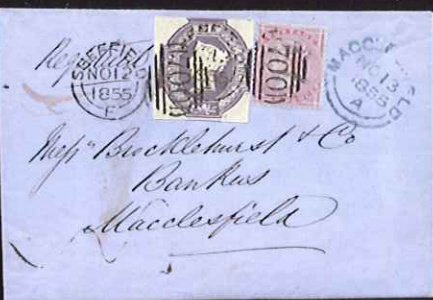 Registered
SHEFFIELD
NO 12
1855
F
700
700
MACCLESFIELD
NO 13
1855
A
Messrs Brocklehurst & Co
Bankers
Macclesfield